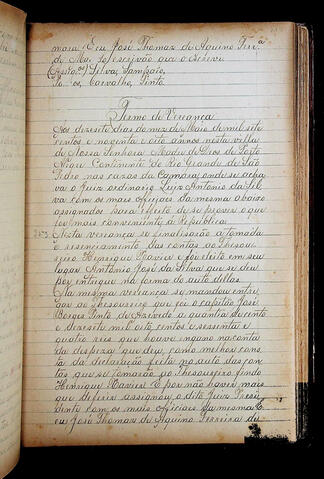 mara Eu José Thomaz de Aquino Ferra
da Ma, to escrivão que o Escrevi
(Assto.os) Silva, Sampaio,
Carvalho, Pinto
Termo de Vereança
Aos dezesete dias do mez de Maio de mil sete
centos e noventa e oito annos nesta villa
de Nossa Senhora Madre de Deos de Porto
Alegre Continente do Rio Grande de São
Pedro nas cazas da Camara onde se acha
va o Juiz ordinario Luiz Antonio da Sil
va com os mais officiaes da mesma abaixo
assignados para effeito de se prover o que
for mais conveniente á Republica
Nesta vereança se finalisarão a tomada
e resenciamento das contas ao thesou
reiro Henrique Xavier e foi eleito em seu
lugar Antônio José da Silva que se deu
por entregue na forma do auto dellas
Na mesma vereança se mandou entre
gar ao thesoureiro que foi o capitão José
Borges Pinto de Azevedo a quantia de cento
e dezesete mil oito centos e sessenta e
quatro reis que houve ingano na conta
da despeza que deu, como melhor cons
ta da declaração feita no auto das con
tas que se tomarão ao thesoureiro findo
Henrique Xavier E por não haver mais
que deferir assignou o dito Juiz Presi
dente com os mais officiaes da mesma E
eu José Thomaz de Aquino Ferreira da